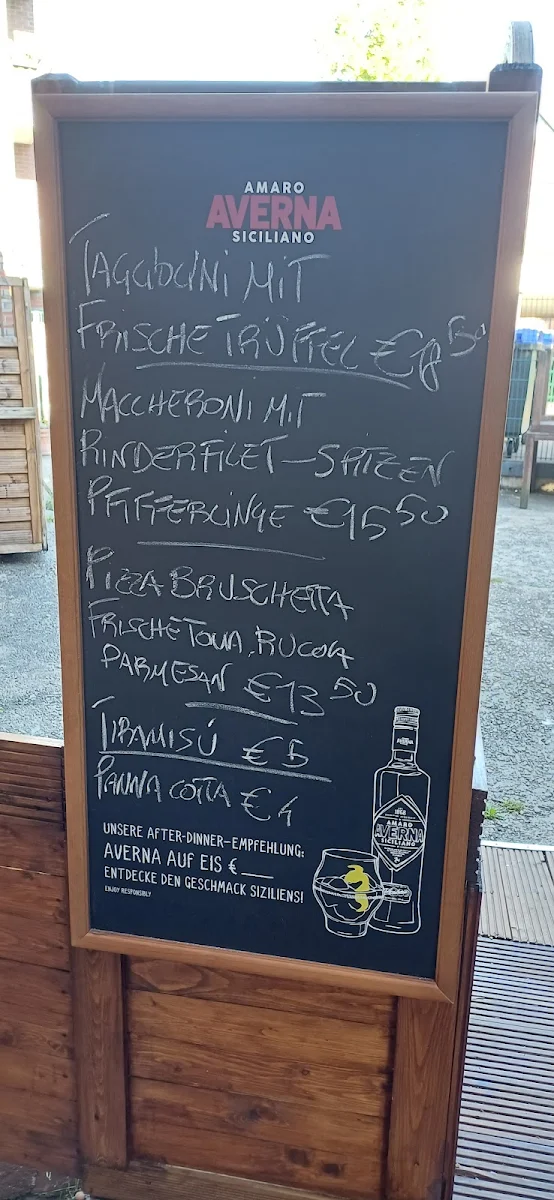 AMARO
AVERNA
SICILIANO
TAGLIOLINI MIT
FRISCHE TRÜFFEL €18 50
MACCHERONI MIT
RINDERFILET-SPITZEN
PFIFFERLINGE €15 50
PIZZA BRUSCHETTA
FRISCHE TOMA, RUCOLA
PARMESAN €13 50
TIRAMISÚ €5
PANNA COTTA €4
UNSERE AFTER-DINNER-EMPFEHLUNG:
AVERNA AUF EIS €
ENTDECKE DEN GESCHMACK SIZILIENS!
ENJOY RESPONSIBLY
AMARO
AVERNA
SICILIANO